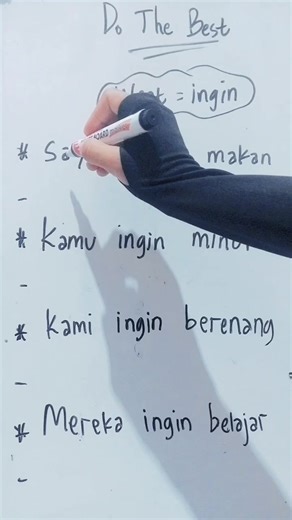 Do The Best
= ingin
* Say makan
-
* Kamu ingin
-
* Kami ingin berenang
-
* Mereka ingin belajar
-